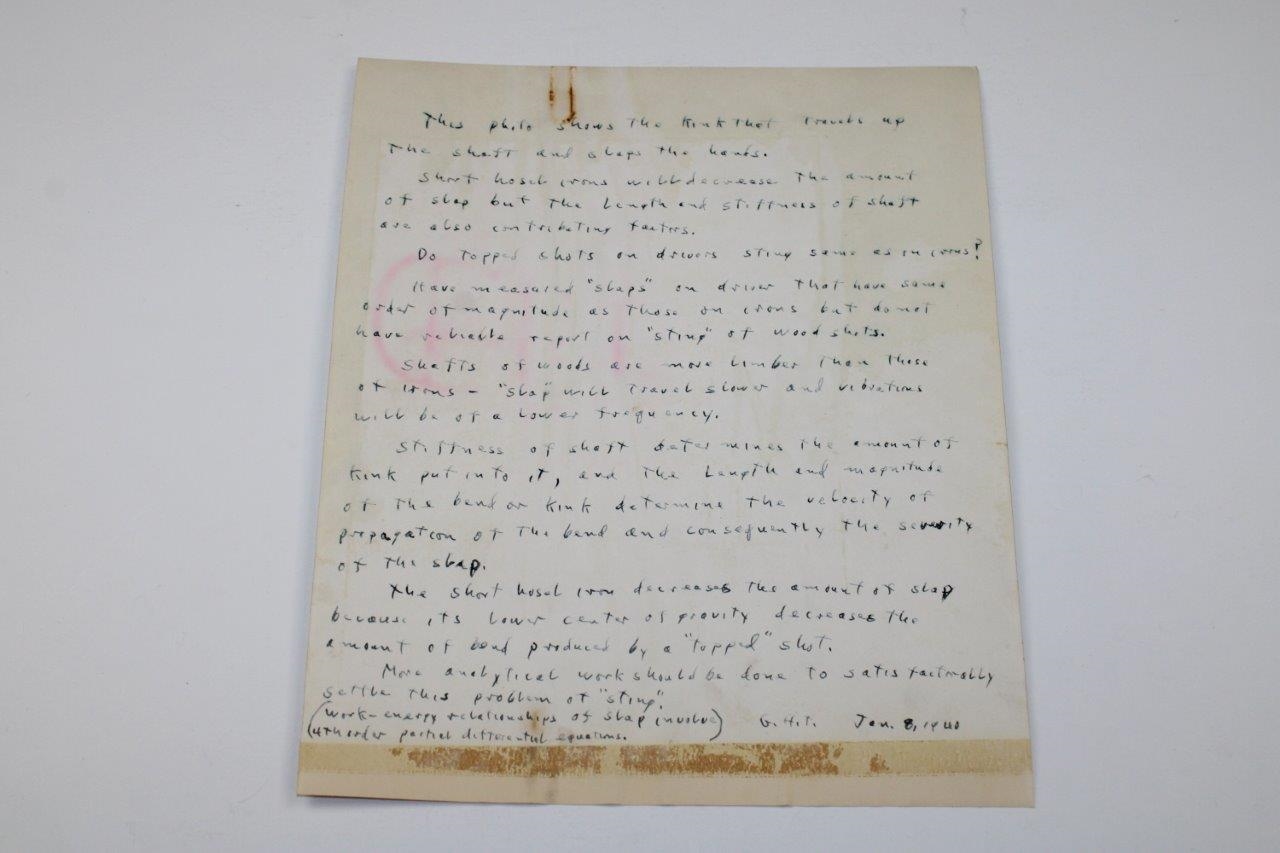 This photo shows the kink that travels up
the shaft and slaps the hands.
Short hosel irons will decrease the amount
of slap but the length and stiffness of shaft
are also contributing factors.
Do topped shots on drivers sting same as on irons?
Have measured "slaps" on driver that have same
order of magnitude as those on irons but do not
have reliable report on "sting" of wood shots.
Shafts of woods are more limber than those
of irons - "slap" will travel slower and vibrations
will be of a lower frequency.
Stiffness of shaft determines the amount of
kink put into it, and the length and magnitude
of the bend or kink determine the velocity of
propagation of the bend and consequently the severity
of the slap.
The short hosel iron decreases the amount of slap
because its lower center of gravity decreases the
amount of bend produced by a "topped" shot.
More analytical work should be done to satisfactorally
settle this problem of "sting".
(work-energy relationships of slap involve) G.H.T. Jan. 8, 1940
(4th order partial differential equations.